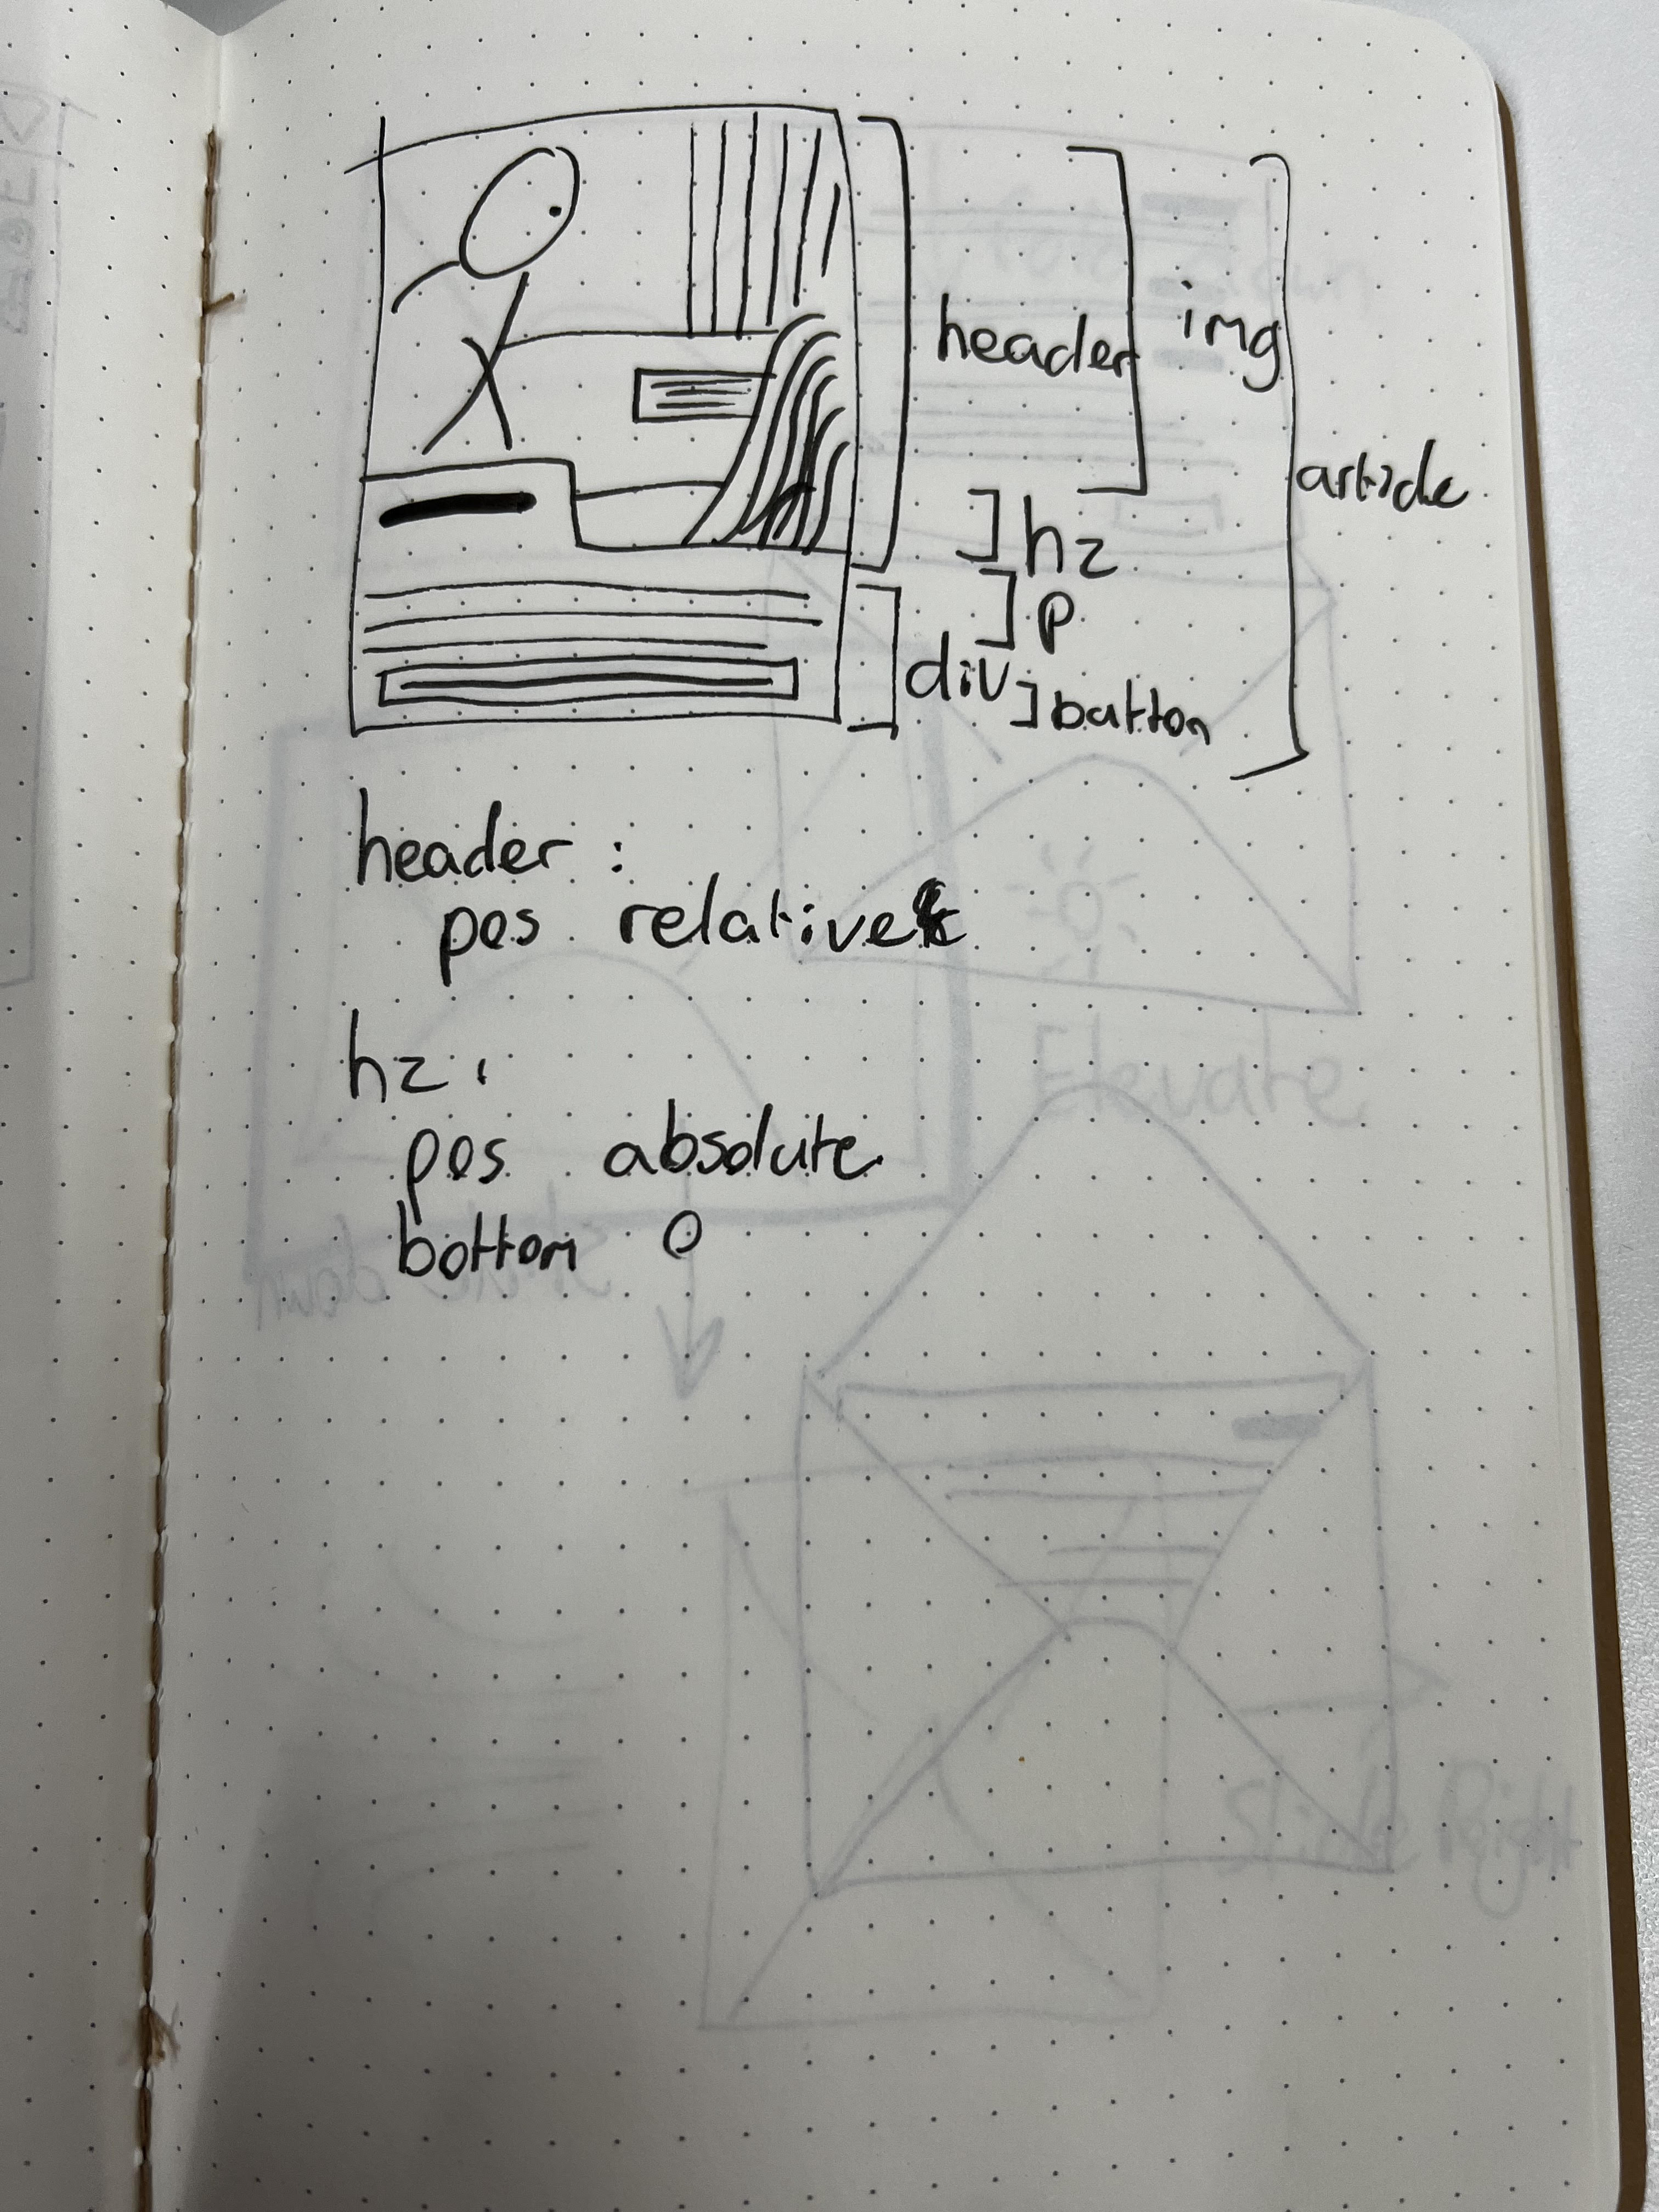 header
img
article
h2
p
div
button
header :
pos relative
h2 :
pos absolute
bottom 0
Elevate
Slide Right